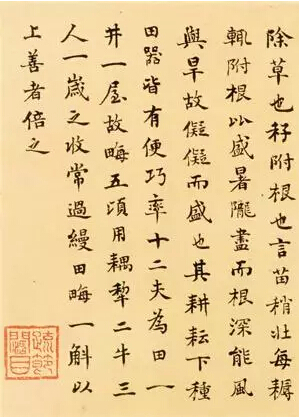 除草也秄附根也言苗稍壯每耨
輒附根比盛暑隴盡而根深能風
與旱故儗儗而盛也其耕耘下種
田器皆有便巧率十二夫為田一
井一屋故畮五頃用耦犁二牛三
人一歲之收常過縵田畮一斛以
上善者倍之